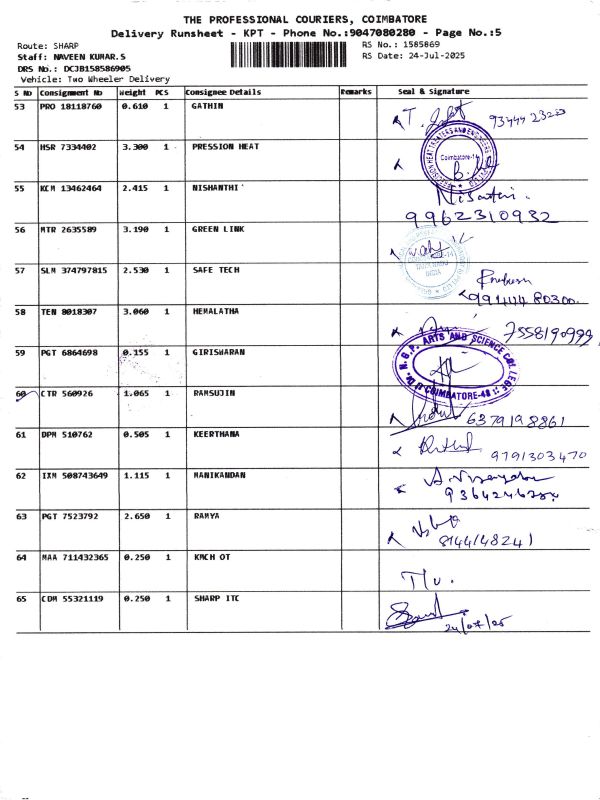 THE PROFESSIONAL COURIERS, COIMBATORE
Delivery Runsheet - KPT - Phone No.:9047080280 - Page No.:5
Route: SHARP
RS No.: 1585869
Staff: NAVEEN KUMAR.S
RS Date: 24-Jul-2025
DRS No.: DCJB158586905
Vehicle: Two Wheeler Delivery
S No Consignment No Weight PCS Consignee Details Remarks Seal & Signature
53 PRO 18118760 0.610 1 GATHIN
54 HSR 7334402 3.300 1 PRESSION HEAT
Coimbatore-14
55 KCM 13462464 2.415 1 NISHANTHI
9962310932
56 MTR 2635589 3.190 1 GREEN LINK
INDIA
57 SLM 374797815 2.530 1 SAFE TECH
58 TEN 8018307 3.060 1 HEMALATHA
7558190999
59 PGT 6864698 0.155 1 GIRISWARAN
Dr. N.G.P. ARTS AND SCIENCE COLLEGE
COIMBATORE-48
60 CTR 560926 1.065 1 RAMSUJIN
6379198861
61 DPM 510762 0.505 1 KEERTHANA
9791303470
62 IXM 508743649 1.115 1 MANIKANDAN
63 PGT 7523792 2.650 1 RAMYA
8144148241
64 MAA 711432365 0.250 1 KMCH OT
65 CDM 55321119 0.250 1 SHARP ITC
24/07/25